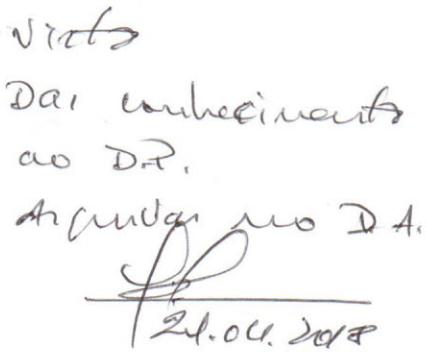 Visto
Dar conhecimento
ao D.P.
Arquivar no D.A.
24.04.2018